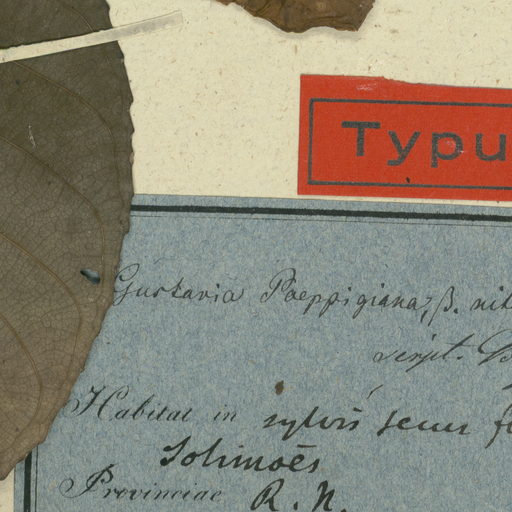 Typu
Gustavia Poeppigiana, β. nit
script. B
Habitat in sylvis secus fl
Solimoës
Provinciae R. N.